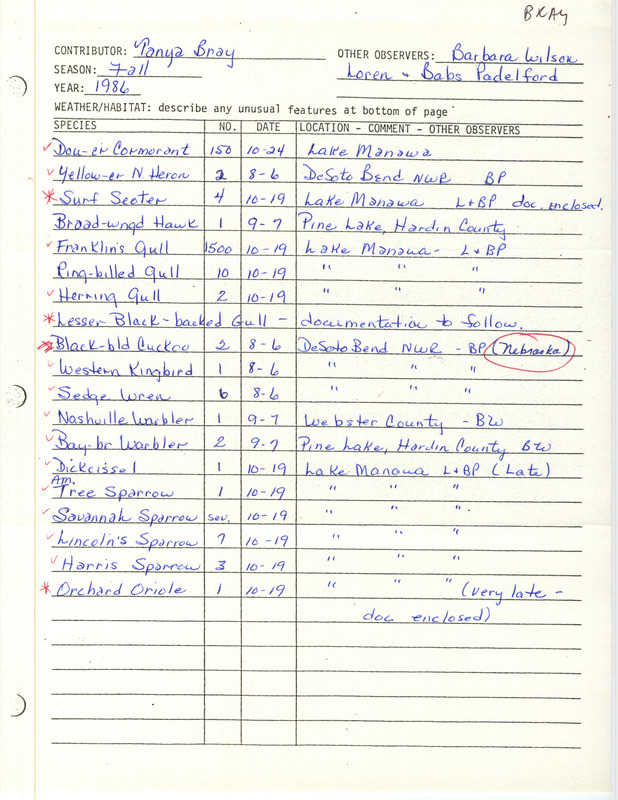 BRAY
CONTRIBUTOR: Tanya Bray OTHER OBSERVERS: Barbara Wilson
SEASON: Fall Loren - Babs Padelford
YEAR: 1986
WEATHER/HABITAT: describe any unusual features at bottom of page
SPECIES NO. DATE LOCATION - COMMENT - OTHER OBSERVERS
Dou-cr Cormorant 150 10-24 Lake Manawa
Yellow-cr N. Heron 2 8-6 DeSoto Bend NWR BP
Surf Scoter 4 10-19 Lake Manawa L+BP doc. enclosed.
Broad-wngd Hawk 1 9-7 Pine Lake, Hardin County
Franklin's Gull 1500 10-19 Lake Manawa - L+BP
Ring-billed Gull 10 10-19 " " "
Herring Gull 2 10-19 " " "
Lesser Black-backed Gull - documentation to follow.
Black-bld Cuckoo 2 8-6 DeSoto Bend NWR - BP (Nebraska)
Western Kingbird 1 8-6 " " "
Sedge Wren 6 8-6 " " "
Nashville Warbler 1 9-7 Webster County - BW
Bay-br Warbler 2 9-7 Pine Lake, Hardin County BW
Dickcissel 1 10-19 Lake Manawa L+BP (Late)
Am. Tree Sparrow 1 10-19 " " "
Savannah Sparrow sev. 10-19 " " "
Lincoln's Sparrow 7 10-19 " " "
Harris Sparrow 3 10-19 " " "
Orchard Oriole 1 10-19 " " " (very late -
doc enclosed)